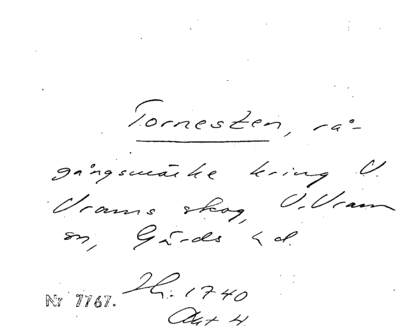 Tornesten, rå-
gångsmärke kring V.
Vrams skog, V. Vram
sn, Gärds hd.
Nr 7767. Jh. 1740
Akt 4